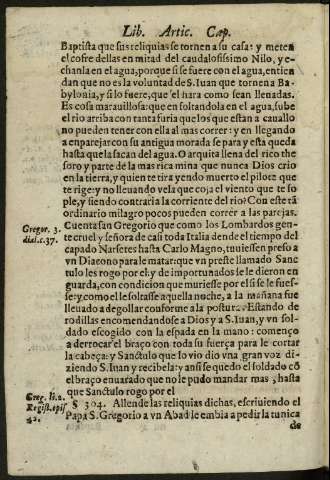 Lib. Artic. Cap.
Baptista que sus reliquias se tornen a su casa: y meten
el cofre dellas en mitad del caudalosissimo Nilo, y e-
chanla en el agua, porque si se fuere con el agua, entien
dan que no es la voluntad de S. Iuan que torne na Ba-
bylonia, y si lo fuere, que el hara como sean llenadas.
Es cosa marauillosa: que en soltandola en el agua, sube
el rio arriba con tanta furia que los que estan a cauallo
no pueden tener con ella al mas correr: y en llegando
a enparejar con su antigua morada se para y esta queda
hasta que la sacan del agua. O arquita llena del rico the
soro y parte de la mas rica mina que nunca Dios crio
en la tierra, y quien te tira yendo muerto el pilote que
te rige: y no lleuando vela que coja el viento que te so
ple, y siendo contraria la corriente del rio? Con este tã
ordinario milagro pocos pueden correr a las parejas.
Gregor. 3.
dial. c. 37.
Cuenta san Gregorio que como los Lombardos gen-
te cruel y señora de casi toda Italia dende el tiempo del
capado Narsetes hasta Carlo Magno, tuuiessen preso a
vn Diacono para le matar: que vn preste llamado Sanc
tulo les rogo por el: y de importunados se le dieron en
guarda, con condicion que muriesse por el si se le fues-
se: y como el le soltasse aquella noche, a la mañana fue
lleuado a degollar conforme a la postura. Estando de
rodillas encomendandose a Dios y a S. Iuan, y vn sol-
dado escogido con la espada en la mano: començo
a derrocar el braço con toda su fuerça para le cortar
la cabeça: y Sanctulo que lo vio dio vna gran voz di-
ziendo S. Iuan y recibela: y ansi se quedo el soldado cõ
el braço enuarado que no le pudo mandar mas, hasta
que Sanctulo rogo por el
Greg. li. 2.
Regist. epis
42.
§ 304. Allende las reliquias dichas, escriuiendo el
Papa S. Gregorio a vn Abad le embia a pedir la tunica
de